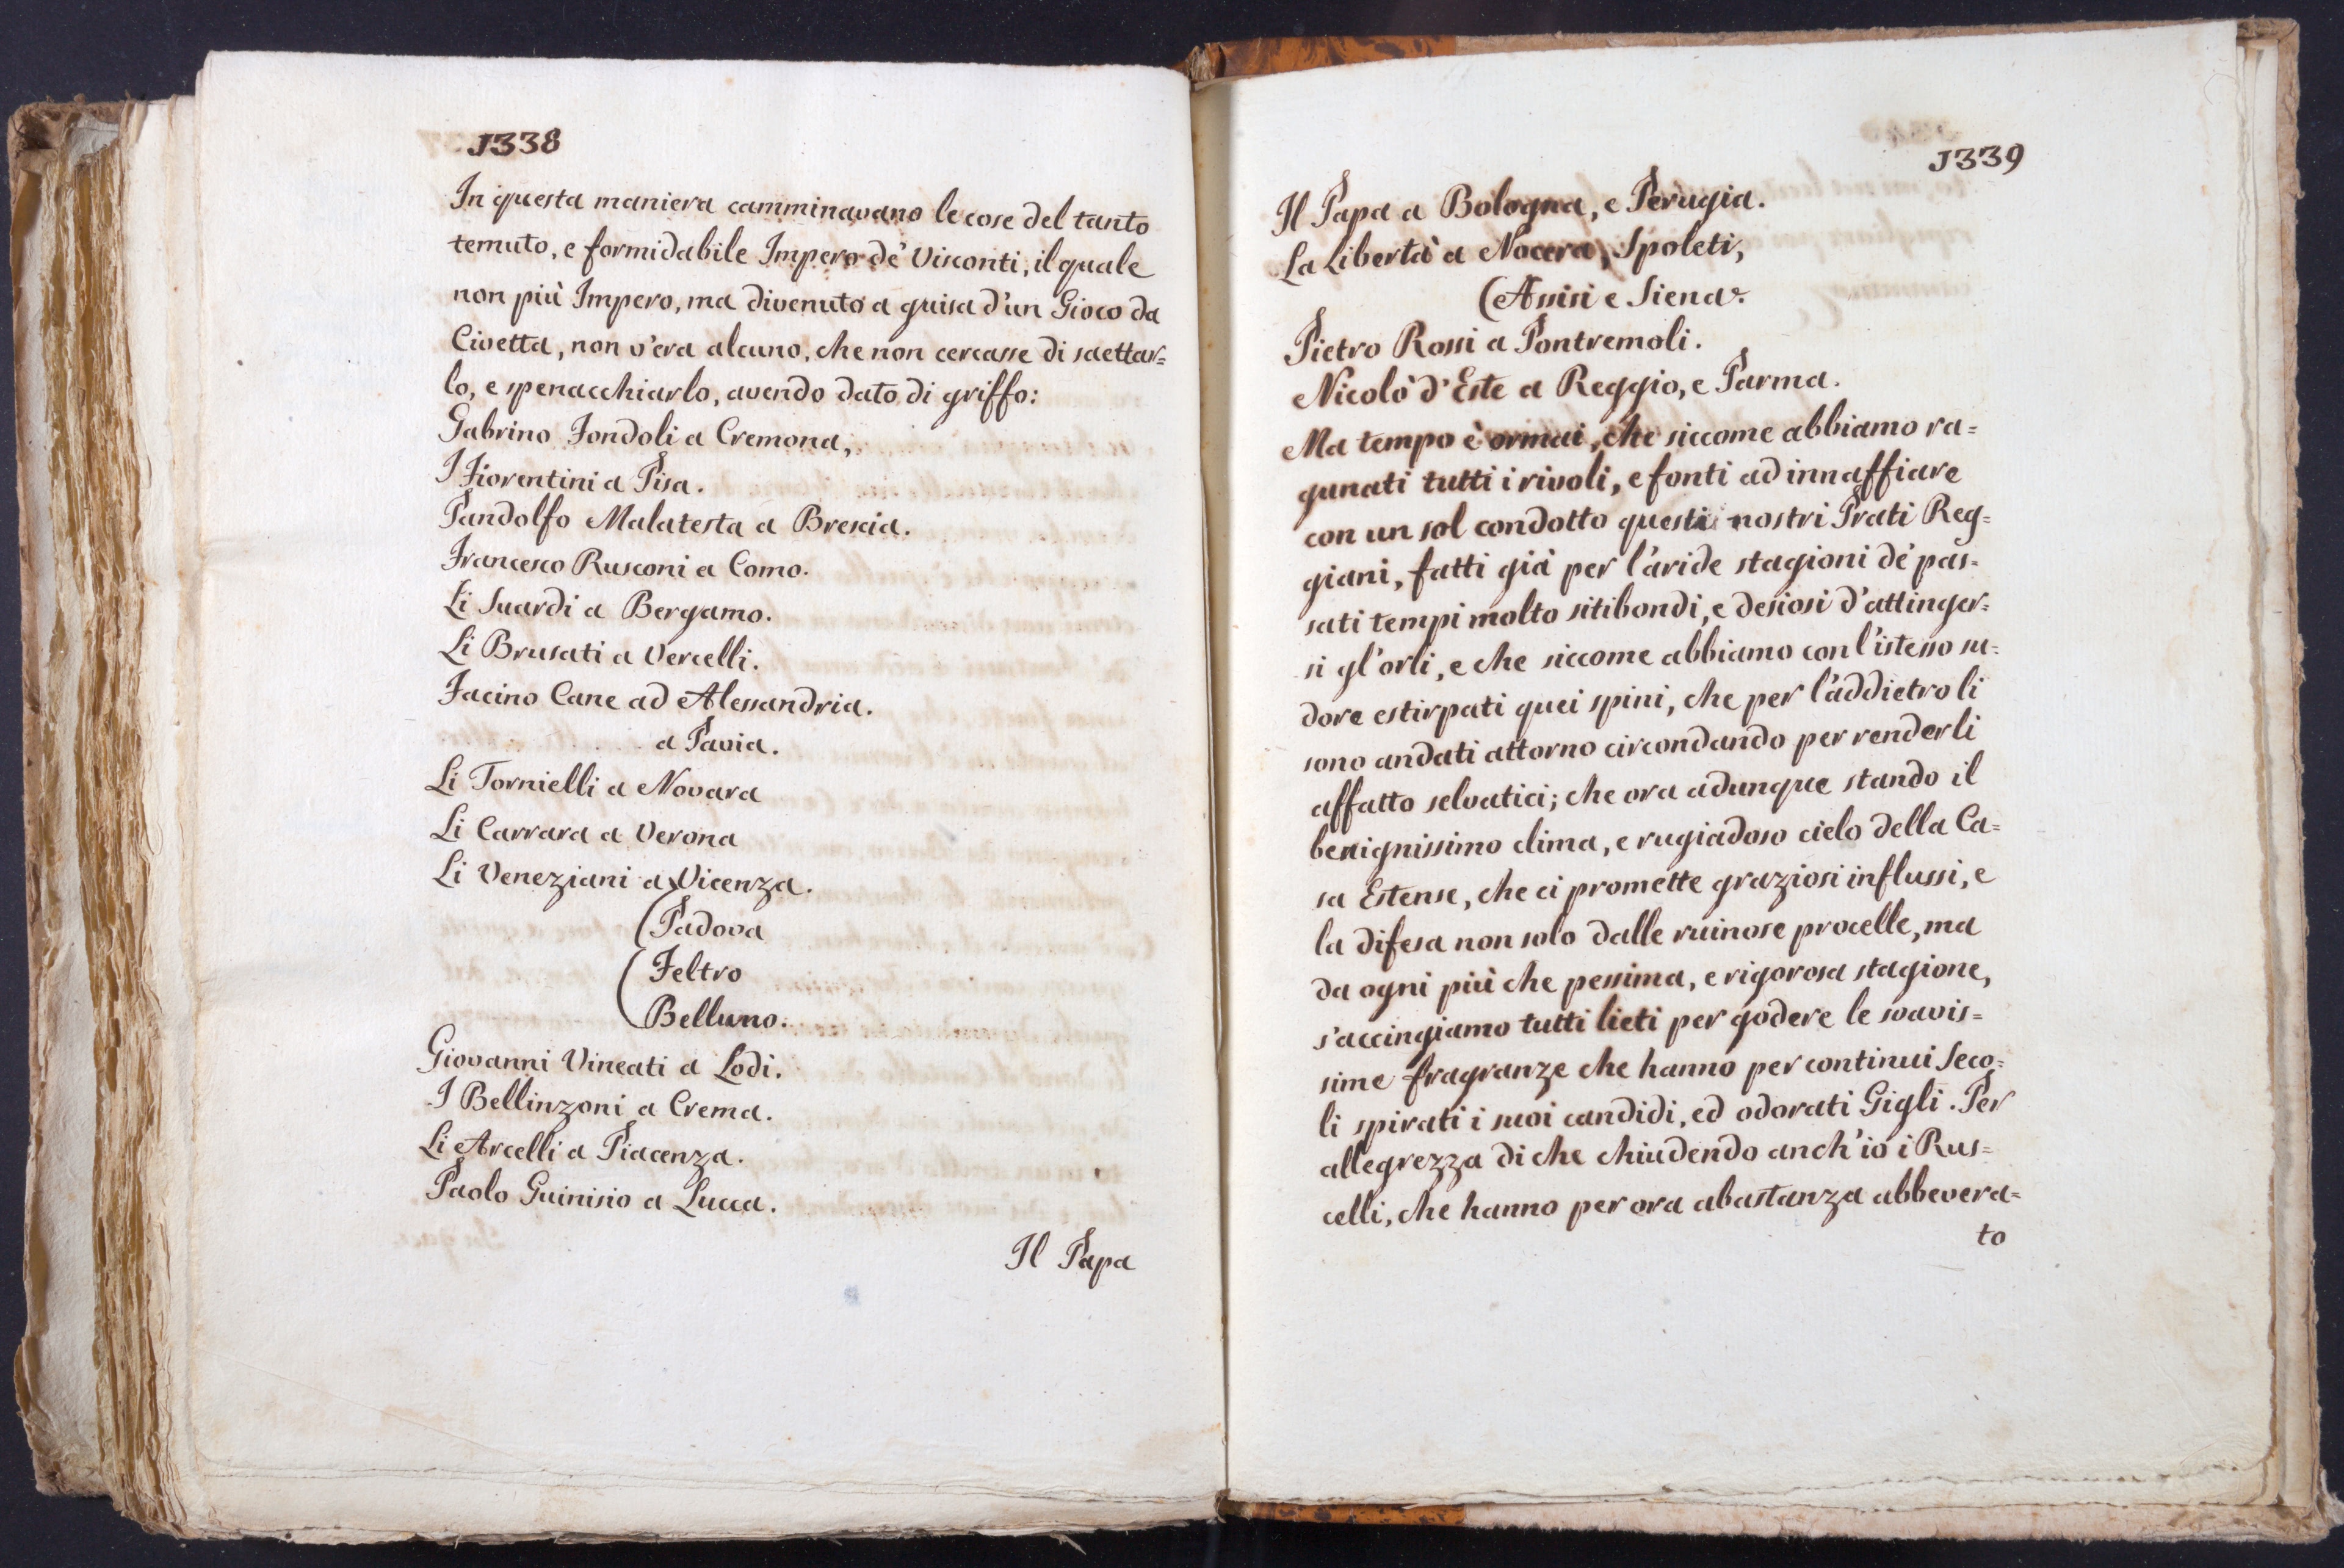 1338
In questa maniera camminavano le cose del tanto
temuto, e formidabile Impero de' Visconti, il quale
non più Impero, ma divenuto a guisa d'un Gioco da
Civetta, non v'era alcuno, che non cercasse di saettar=
lo, e spenacchiarlo, avendo dato di griffo:
Gabrino Fondoli a Cremona,
I Fiorentini a Pisa.
Pandolfo Malatesta a Brescia.
Francesco Rusconi a Como.
Li Suardi a Bergamo.
Li Brusati a Vercelli.
Facino Cane ad Alessandria.
a Pavia.
Li Tornielli a Novara
Li Carrara a Verona
Li Veneziani a Vicenza.
(Padova
(Feltro
Belluno.
Giovanni Vineati a Lodi.
I Bellinzoni a Crema.
Li Arcelli a Piacenza.
Paolo Guinisio a Lucca.
Il Papa
1339
Il Papa a Bologna, e Perugia.
La Libertà a Nocera, Spoleti,
(Assisi e Siena.
Pietro Rossi a Pontremoli.
Nicolò d'Este a Reggio, e Parma.
Ma tempo è ormai, che siccome abbiamo ra=
gunati tutti i rivoli, e fonti ad innaffiare
con un sol condotto questi nostri Prati Reg=
giani, fatti già per l'aride stagioni de' pas=
sati tempi molto sitibondi, e desiosi d'attinger=
si gl'orli, e che siccome abbiamo con l'istesso su=
dore estirpati quei spini, che per l'addietro li
sono andati attorno circondando per renderli
affatto selvatici; che ora adunque stando il
benignissimo clima, e rugiadoso cielo della Ca=
sa Estense, che ci promette graziosi influssi, e
la difesa non solo dalle ruinose procelle, ma
da ogni più che pessima, e rigorosa stagione,
s'accingiamo tutti lieti per godere le soavis=
sime fragranze che hanno per continui Seco=
li spirati i suoi candidi, ed odorati Gigli. Per
allegrezza di che chiudendo anch'io i Rus=
celli, che hanno per ora abastanza abbevera=
to